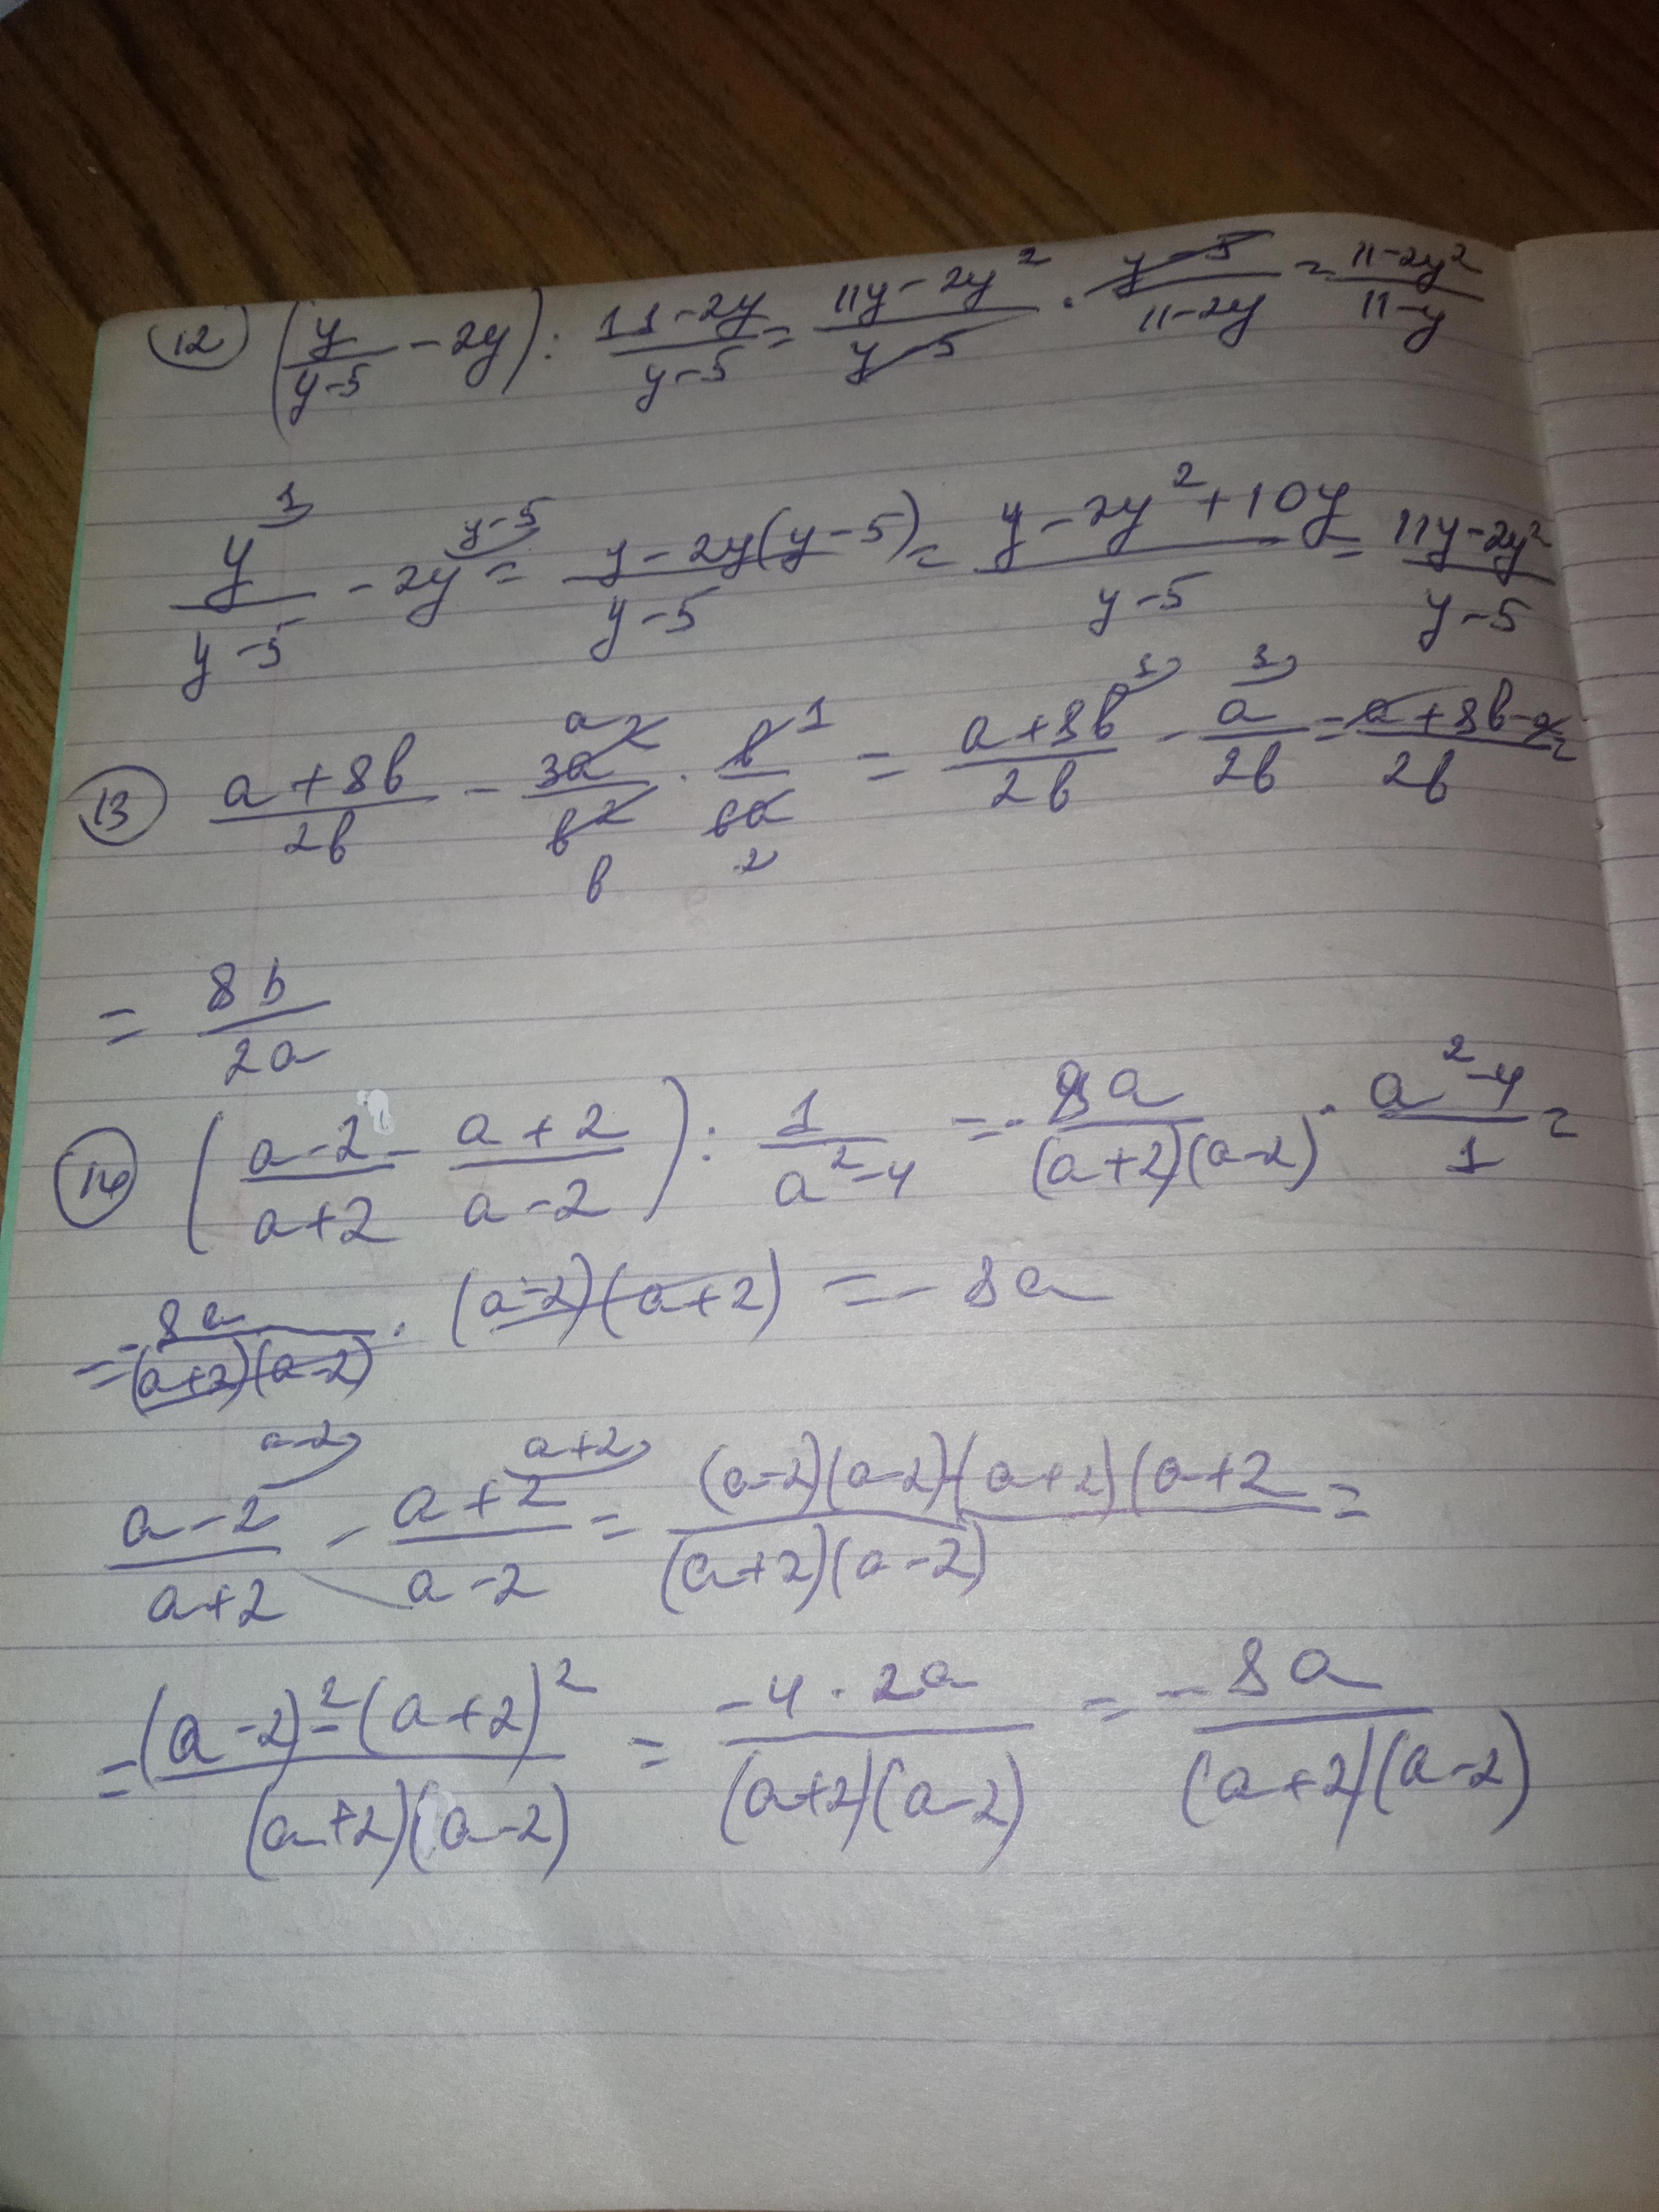 12) (y/(y-5) - 2y) : (11-2y)/(y-5) = (11y-2y²)/(y-5) · (y-5)/(11-2y) = (11-2y²)/(11-y)
y/(y-5) - 2y = (y-2y(y-5))/(y-5) = (y-2y²+10y)/(y-5) = (11y-2y²)/(y-5)
13) (a+8b)/2b - 3a²/b² · b/6a = (a+8b)/2b - a/2b = (a+8b-a)/2b =
= 8b/2a
14) ((a-2)/(a+2) - (a+2)/(a-2)) : 1/(a²-4) = -8a/((a+2)(a-2)) · (a²-4)/1 =
= -8a/((a+2)(a-2)) · (a-2)(a+2) = -8a
(a-2)/(a+2) - (a+2)/(a-2) = ((a-2)(a-2)-(a+2)(a+2)/((a+2)(a-2)) =
= ((a-2)²-(a+2)²)/((a+2)(a-2)) = (-4·2a)/((a+2)(a-2)) = -8a/((a+2)(a-2))